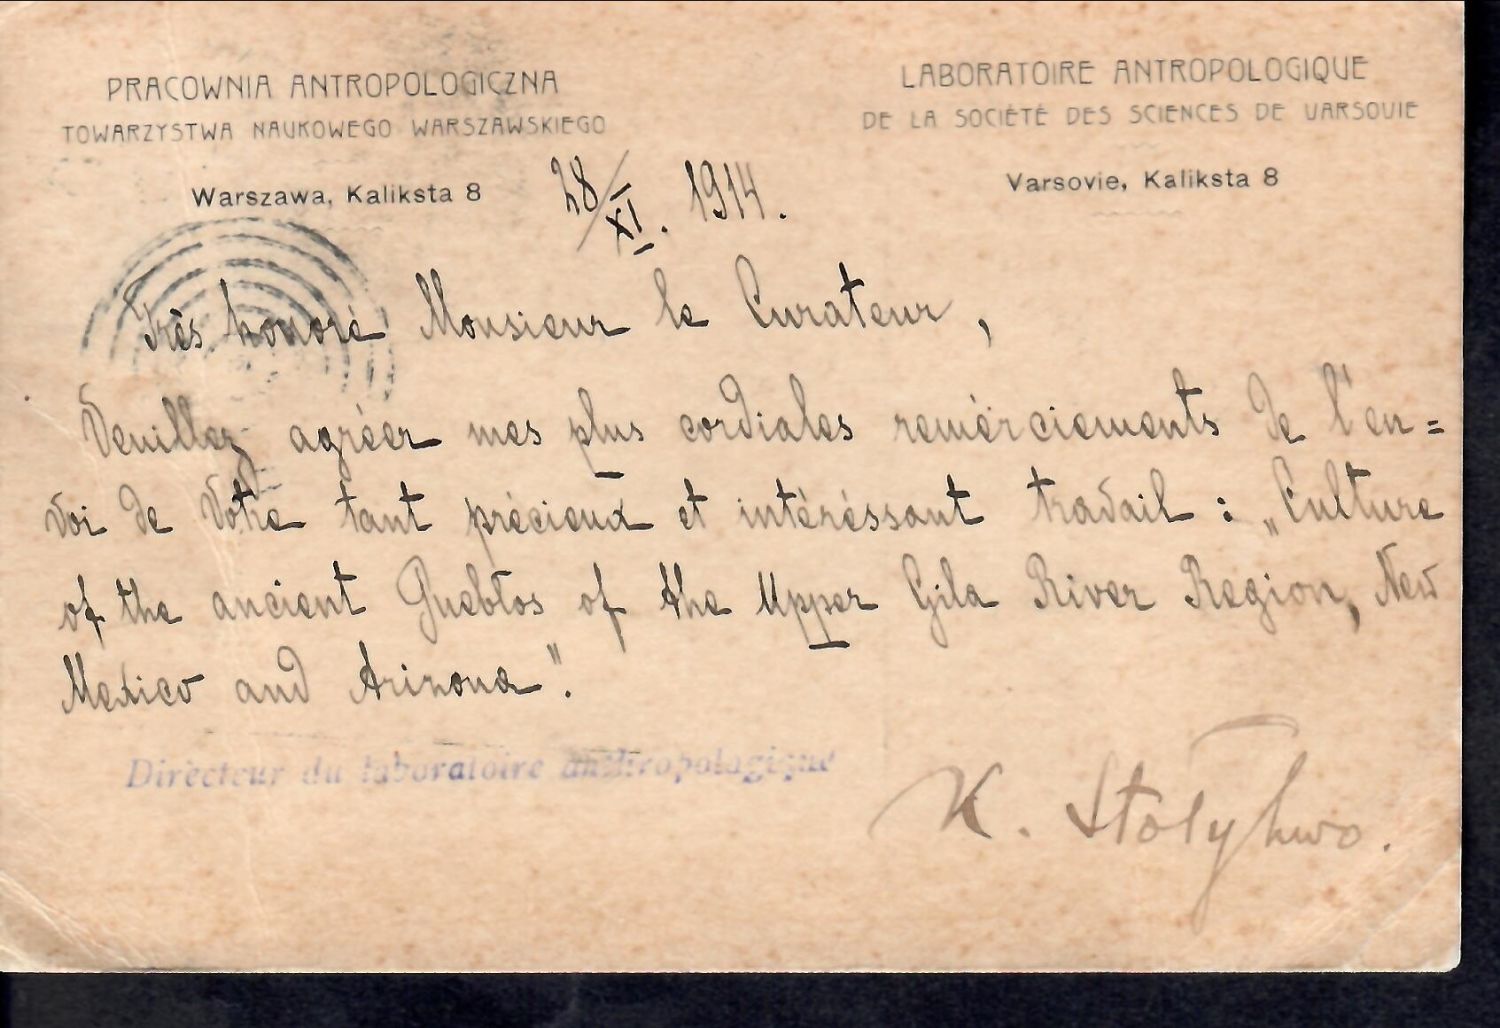 PRACOWNIA ANTROPOLOGICZNA
TOWARZYSTWA NAUKOWEGO WARSZAWSKIEGO
Warszawa, Kaliksta 8
LABORATOIRE ANTROPOLOGIQUE
DE LA SOCIÉTÉ DES SCIENCES DE VARSOVIE
Varsovie, Kaliksta 8
28/XI. 1914.
Très honoré Monsieur le Curateur,
Veuillez agréer mes plus cordiales remérciements de l'en=
voi de Votre tant précieux et intéréssant travail : „Culture
of the ancient Pueblos of the Upper Gila River Region, New
Mexico and Arizona".
Directeur du laboratoire anthropologique
K. Stołyhwo.